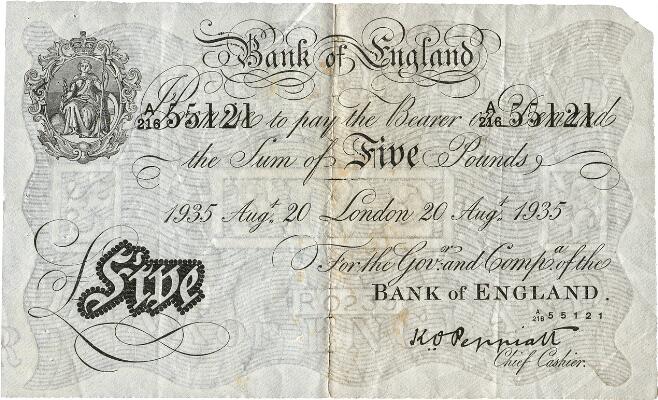 Bank of England
A
216 55121 Promise to pay the Bearer on Demand A
216 55121
the Sum of Five Pounds
1935 Augt. 20 London 20 Augt. 1935
For the Govr. and Compa. of the
BANK of ENGLAND.
A
216 55121
Five
K.O. Peppiatt
Chief Cashier.